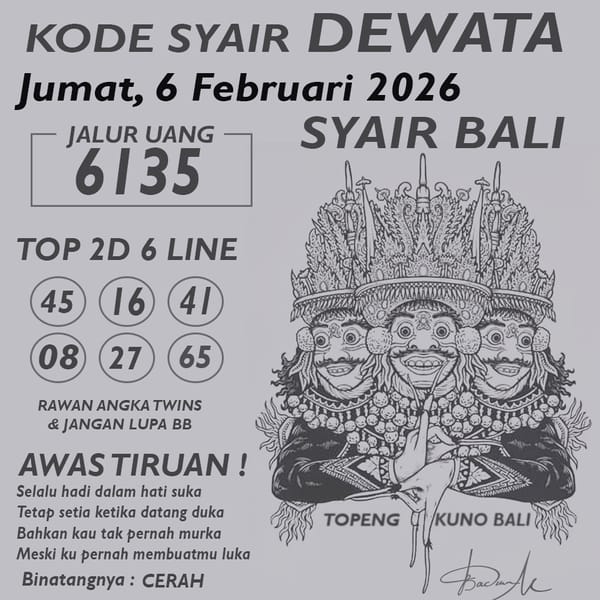 KODE SYAIR DEWATA
Jumat, 6 Februari 2026
JALUR UANG
6135
SYAIR BALI
TOP 2D 6 LINE
45 16 41
08 27 65
RAWAN ANGKA TWINS
& JANGAN LUPA BB
AWAS TIRUAN !
Selalu hadi dalam hati suka
Tetap setia ketika datang duka
Bahkan kau tak pernah murka
Meski ku pernah membuatmu luka
Binatangnya : CERAH
TOPENG KUNO BALI